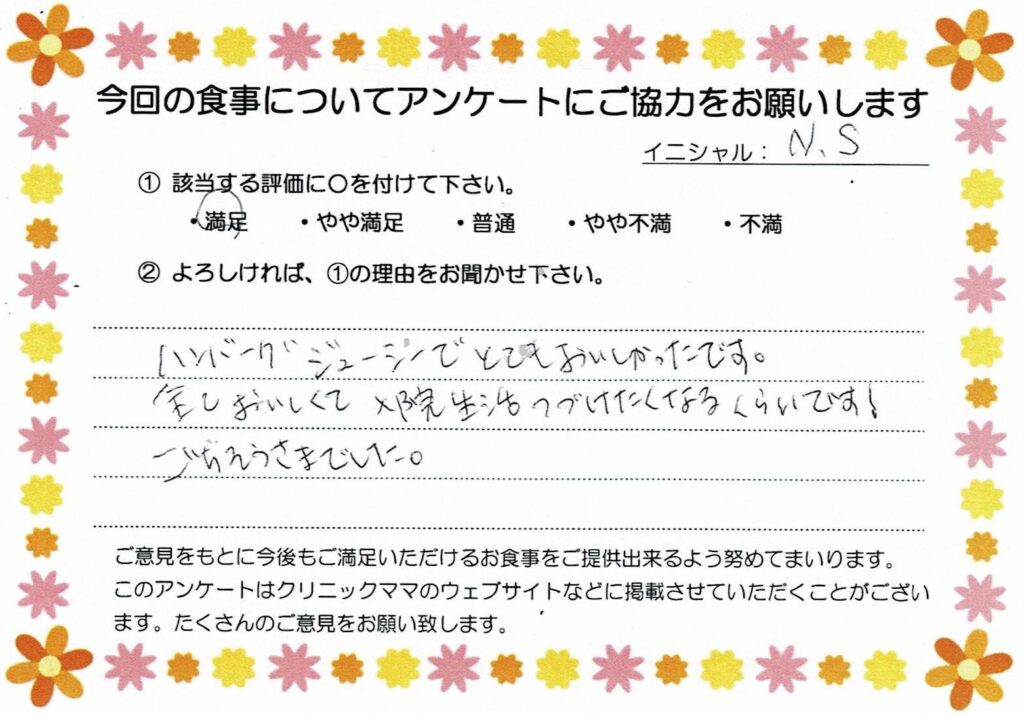 今回の食事についてアンケートにご協力をお願いします
イニシャル： N、S
① 該当する評価に〇を付けて下さい。
・満足 ・やや満足 ・普通 ・やや不満 ・不満
② よろしければ、①の理由をお聞かせ下さい。
ハンバーグ ジューシーで とてもおいしかったです。
全て おいしくて 入院生活 つづけたくなるくらいです!
ごちそうさまでした。
ご意見をもとに今後もご満足いただけるお食事をご提供出来るよう努めてまいります。
このアンケートはクリニックママのウェブサイトなどに掲載させていただくことがござい
ます。たくさんのご意見をお願い致します。